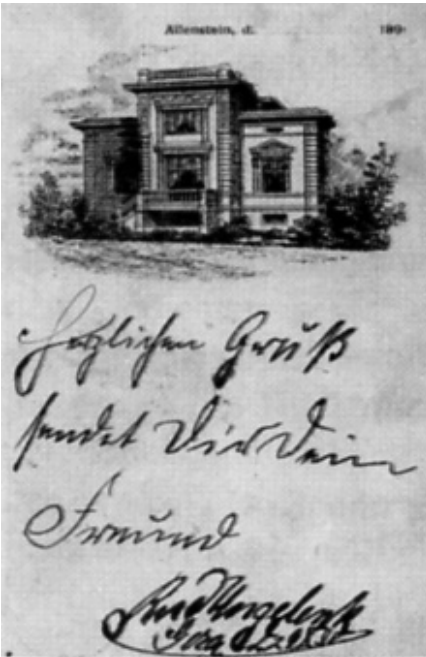 Allenstein, d. 189
Herzlichen Gruß
sendet Dir Dein
Freund